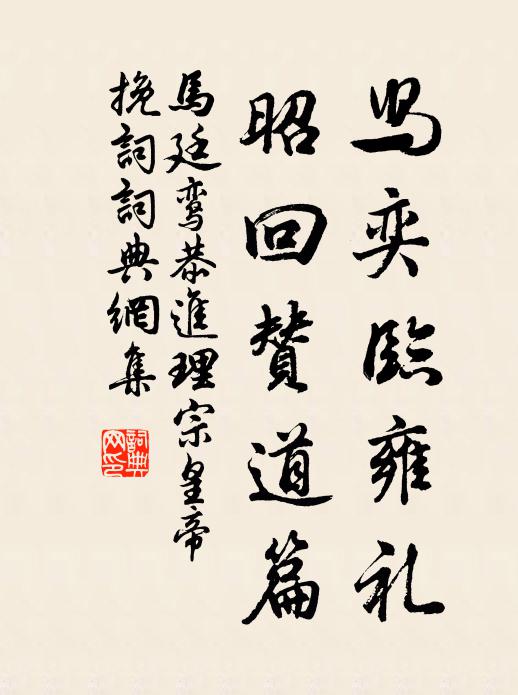 舄奕臨雍礼
昭回賛道篇
馬廷鸾恭進理宗皇帝
挽詞詞典網集
詞典
网印